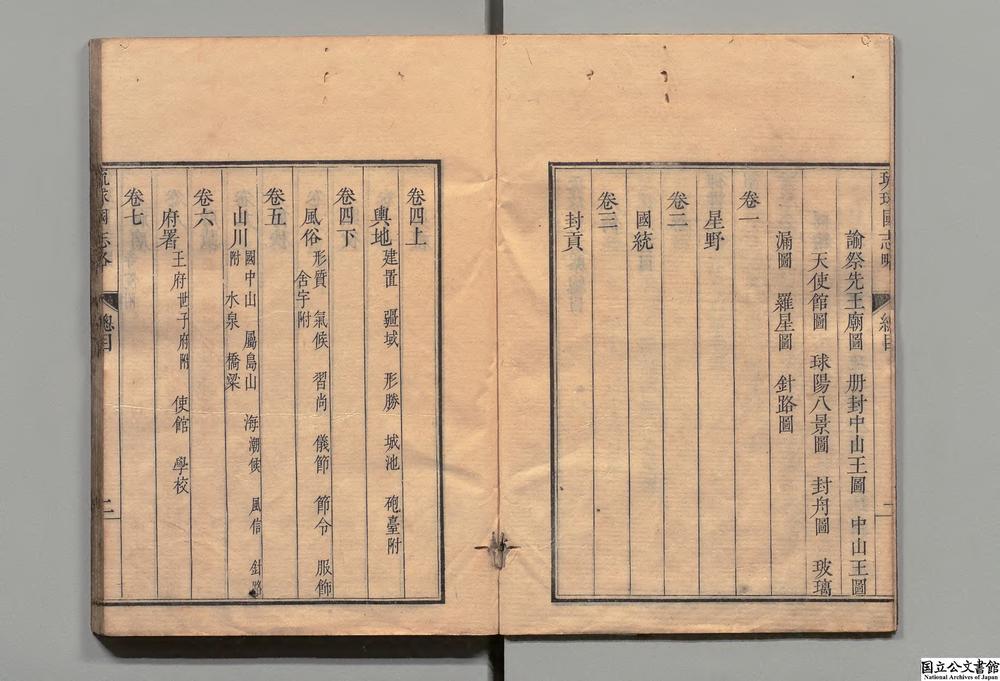 琉球國志略 總目
諭祭先王廟圖 册封中山王圖 中山王圖
天使館圖 球陽八景圖 封舟圖 玻璃
漏圖 羅星圖 針路圖
卷一
星野
卷二
國統
卷三
封貢
卷四上
輿地 建置 疆域 形勝 城池 砲臺附
卷四下
風俗 形質 氣候 習尚 儀節 節令 服飾
舍宇附
卷五
山川 國中山 屬島山 海潮候 風信 針路
附 水泉 橋梁
卷六
府署 王府世子府附 使館 學校
卷七
琉球國志略 總目 二
国立公文書館
National Archives of Japan